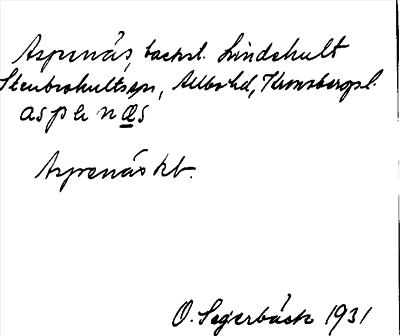 Aspenäs, backst. Lindehult
Stenbrohultssn, Allbo hd, Kronobergs l.
aspen æs
Aspenäs kt.
O. Segerbäck 1931